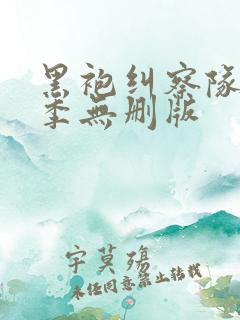 黑袍纠察队
季無删版
宇莫殇
未经同意禁止转载